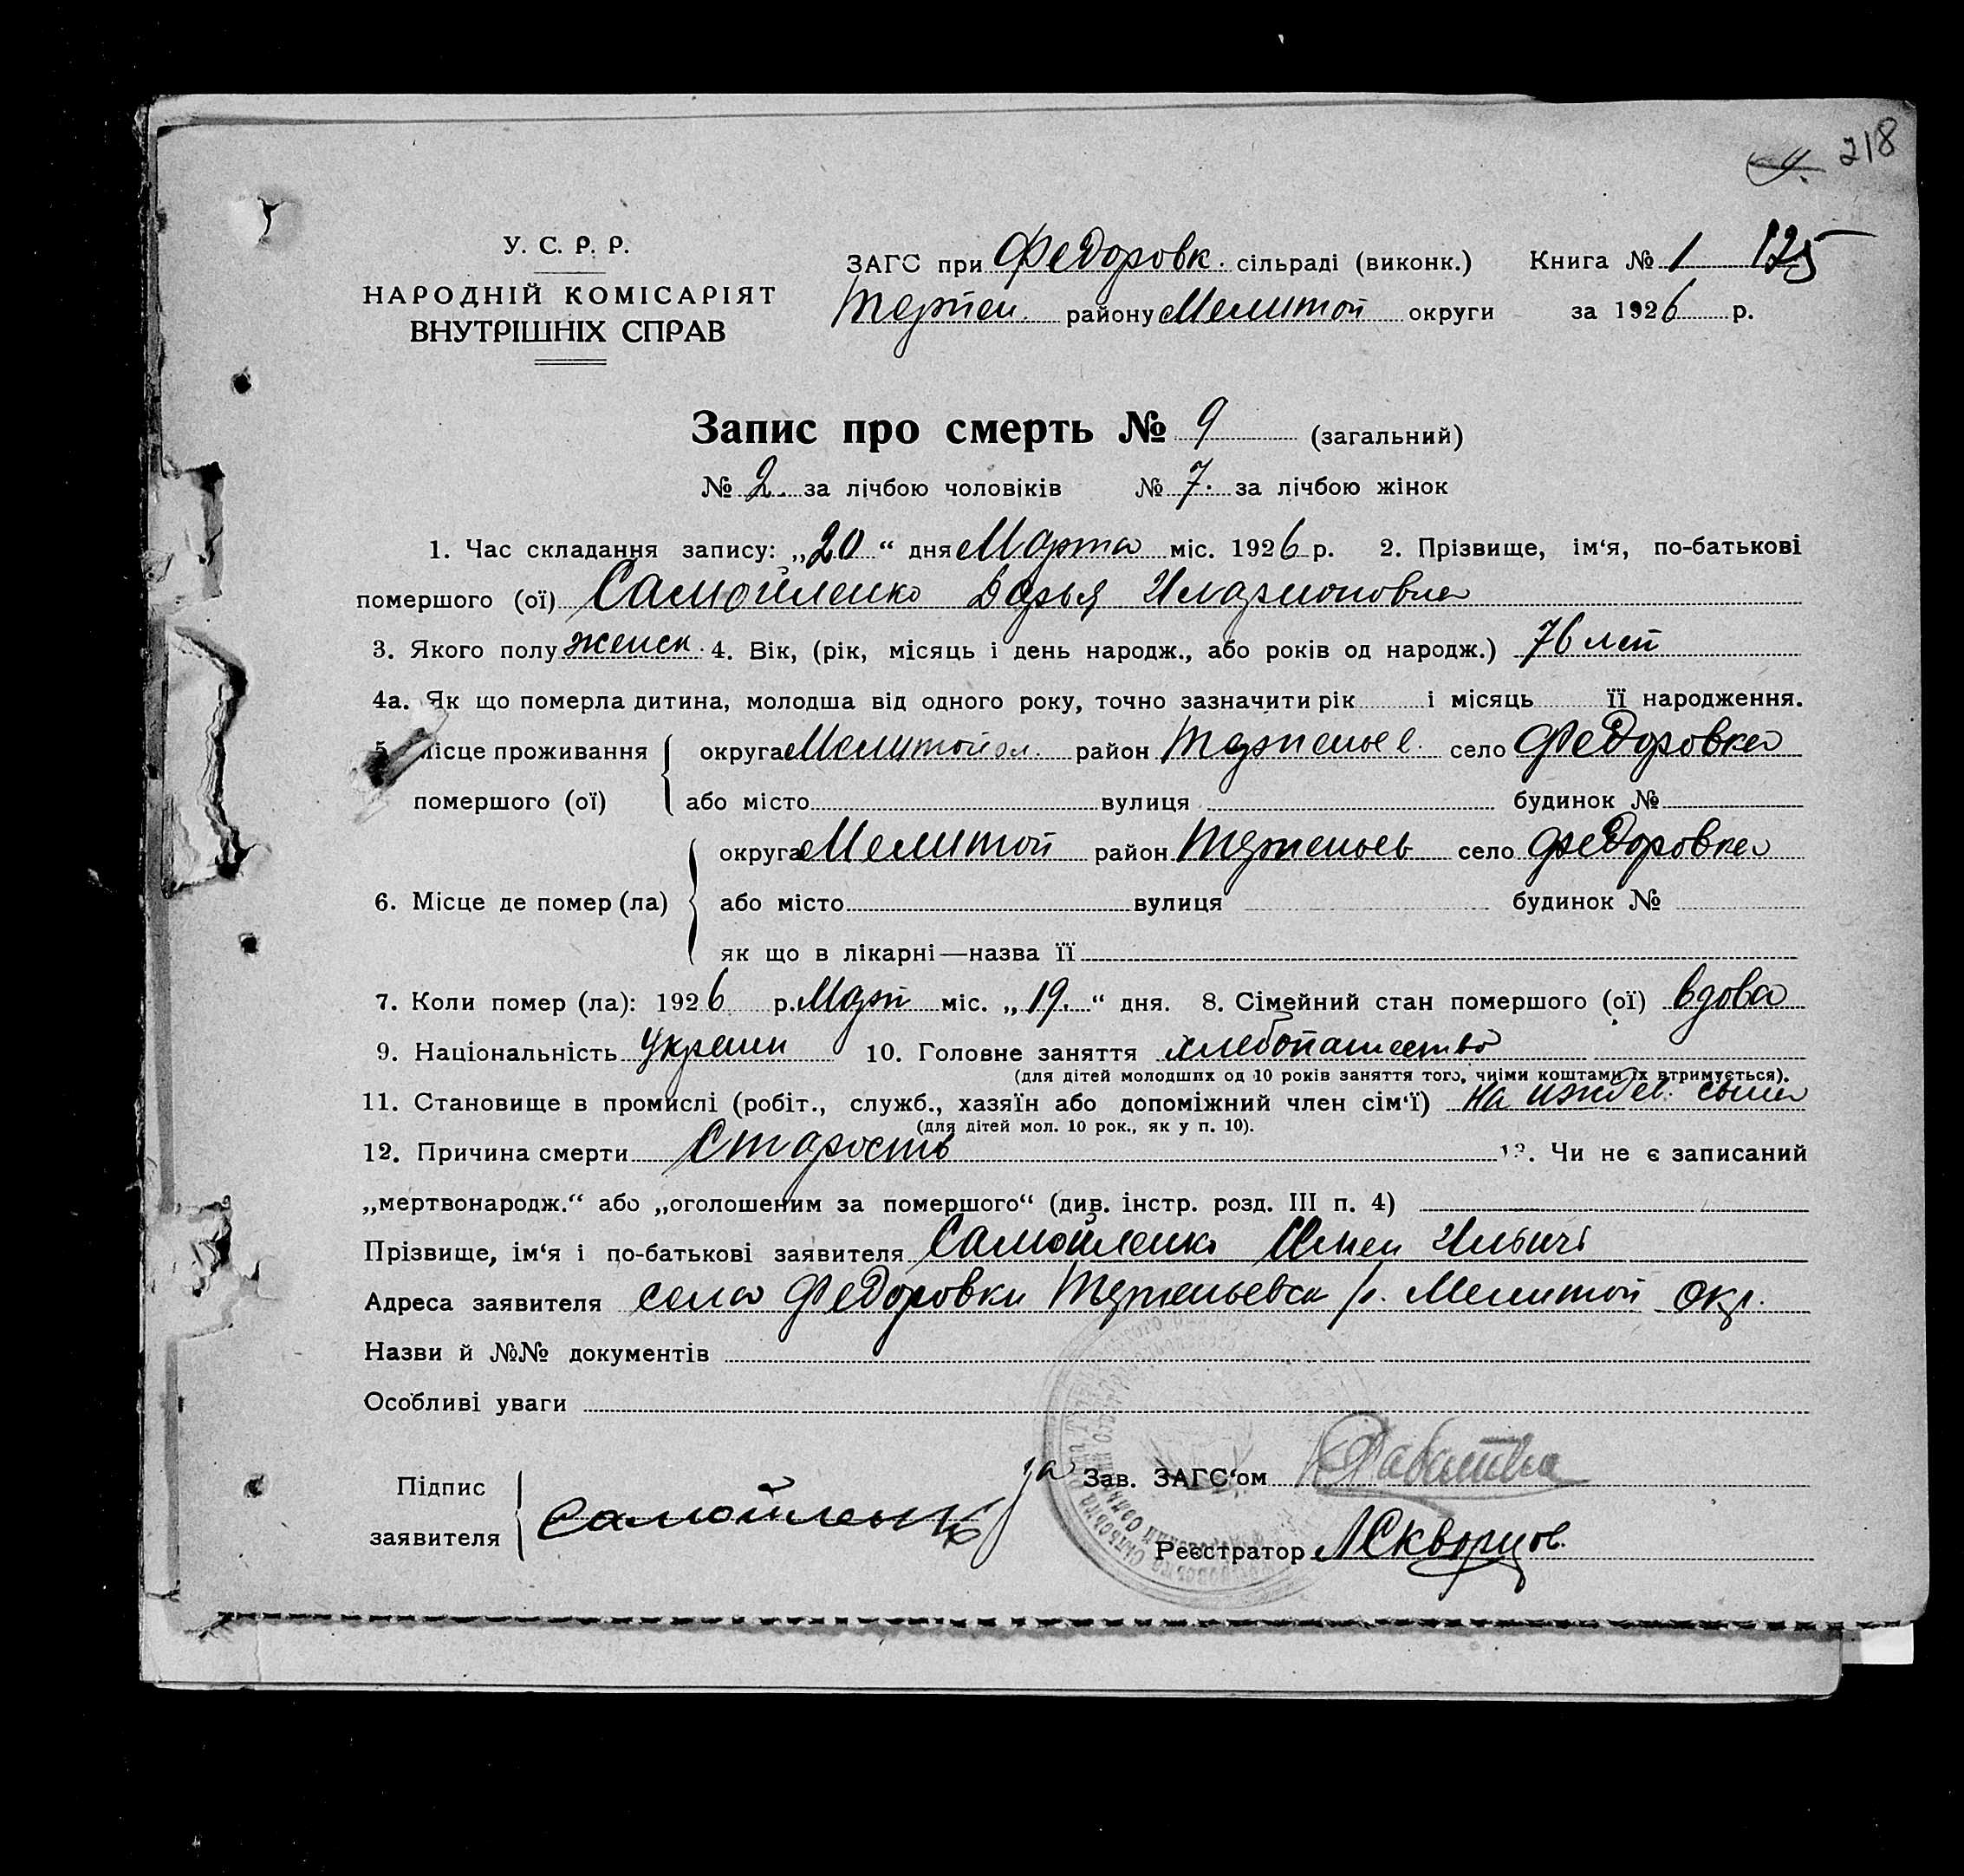 218
У. С. Р. Р.
НАРОДНІЙ КОМІСАРІЯТ
ВНУТРІШНІХ СПРАВ
ЗАГС при Федоровк. сільраді (виконк.) Книга № 1 125
Терпен. району Мелитоп округи за 1926 р.
Запис про смерть № 9 (загальний)
№ 2. за лічбою чоловіків № 7. за лічбою жінок
1. Час складання запису: „20“ дня Марта міс. 1926 р. 2. Прізвище, ім‘я, по-батькові
помершого (ої) Самойленко Дарья Иларионовна
3. Якого полу женск. 4. Вік, (рік, місяць і день народж., або років од народж.) 76 лет
4а. Як що померла дитина, молодша від одного року, точно зазначити рік і місяць її народження.
5. Місце проживання округа Мелитопол. район Терпеньев. село Федоровка
помершого (ої) або місто вулиця будинок №
округа Мелитоп район Терпеньев село Федоровка
6. Місце де помер (ла) або місто вулиця будинок №
як що в лікарні—назва її
7. Коли помер (ла): 1926 р. Март міс. „19.“ дня. 8. Сімейний стан помершого (ої) вдова
9. Національність Украин 10. Головне заняття хлебопашество
(для дітей молодших од 10 років заняття того, чиїми коштами їх втримується).
11. Становище в промислі (робіт., служб., хазяїн або допоміжний член сім‘ї) на иждев. сына
(для дітей мол. 10 рок., як у п. 10).
12. Причина смерти Старость 13. Чи не є записаний
„мертвонародж.“ або „оголошеним за помершого“ (див. інстр. розд. III п. 4)
Прізвище, ім‘я і по-батькові заявителя Самойленко Ильич
Адреса заявителя села Федоровки Терпеньевск р. Мелитоп окр.
Назви й №№ документів
Особливі уваги
Підпис
заявителя Самойленко
за Зав. ЗАГС‘ом
Реєстратор Л Скворцов.